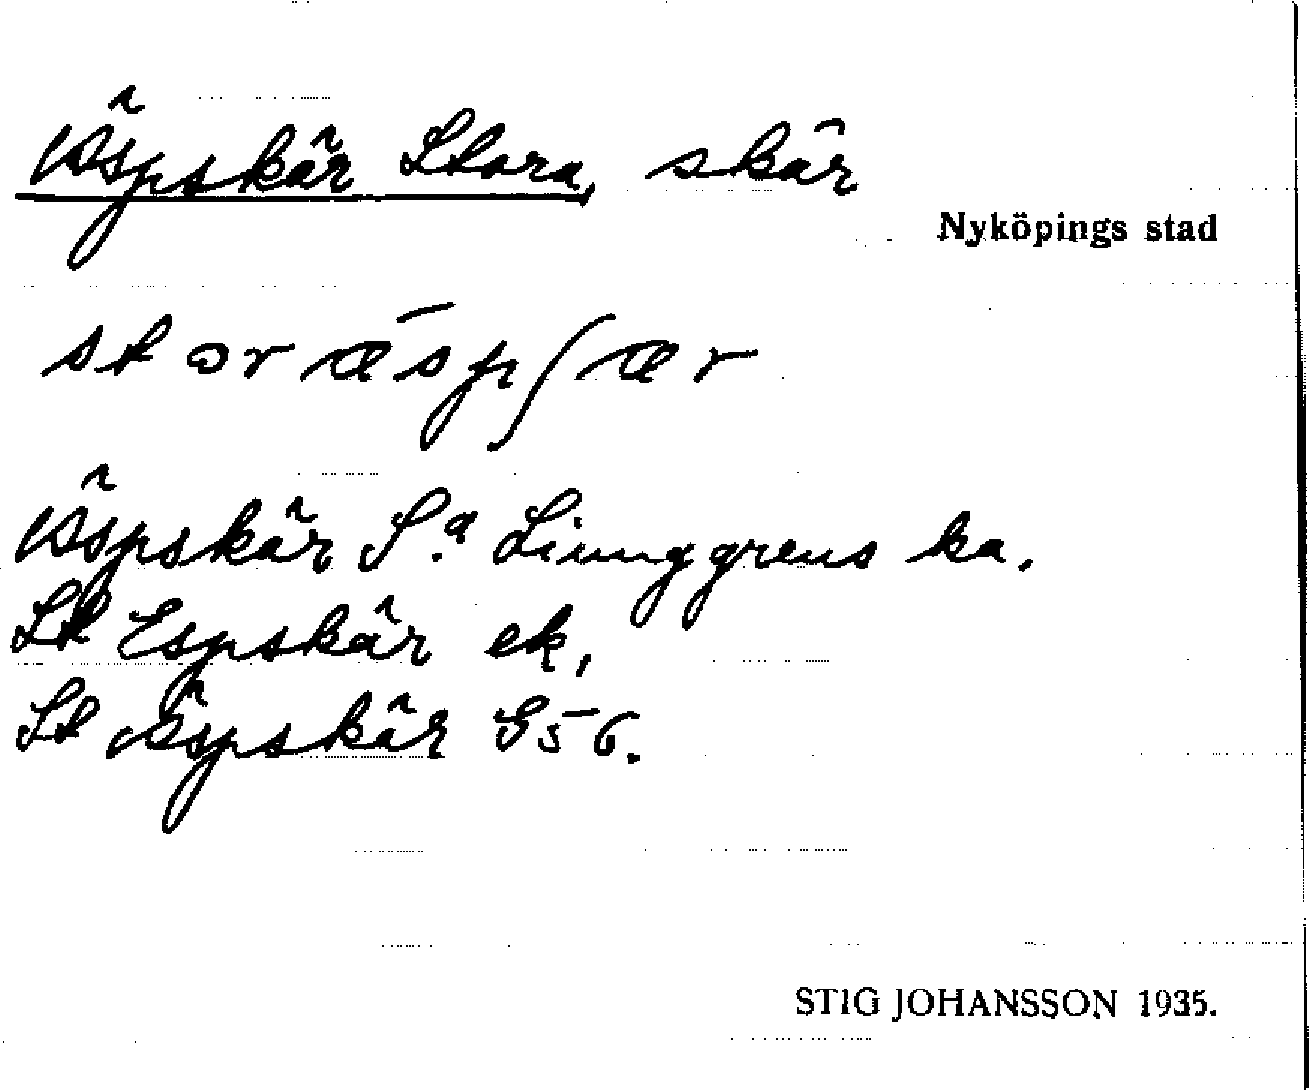 Äspskär Stora, skär
Nyköpings stad
storǣspʃær
Äspskär S:a Liunggrens ka.
St Espskär ek,
St Äspskär G56.
STIG JOHANSSON 1935.